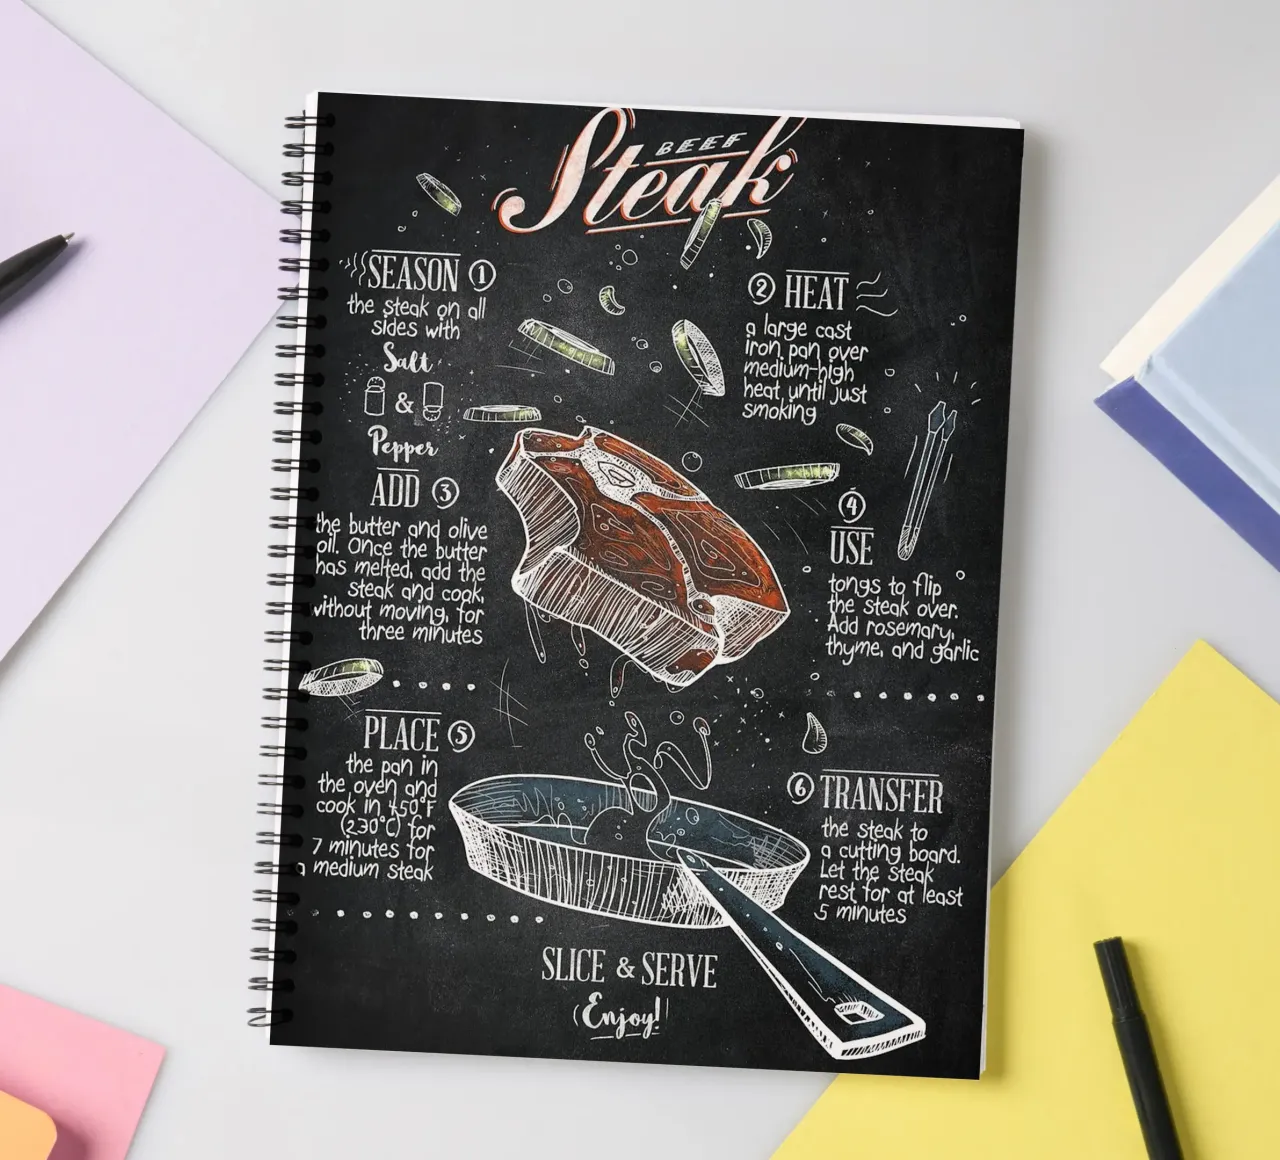 BEEF
Steak
SEASON 1
the steak on all
sides with
Salt
&
Pepper
2 HEAT
a large cast
iron pan over
medium-high
heat, until just
smoking
ADD 3
the butter and olive
oil. Once the butter
has melted, add the
steak and cook,
without moving, for
three minutes
4
USE
tongs to flip
the steak over.
Add rosemary,
thyme, and garlic
PLACE 5
the pan in
the oven and
cook in 450°F
(230°C) for
7 minutes for
a medium steak
6 TRANSFER
the steak to
a cutting board.
Let the steak
rest for at least
5 minutes
SLICE & SERVE
(Enjoy!